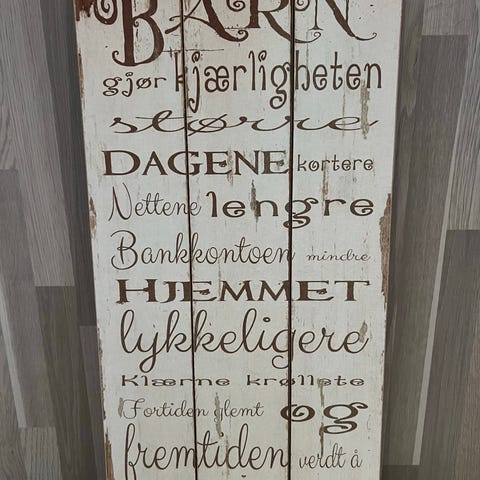 BARN
gjør kjærligheten
større
DAGENE kortere
Nettene lengre
Bankkontoen mindre
HJEMMET
lykkeligere
Klærne krøllete
Fortiden glemt og
fremtiden verdt å